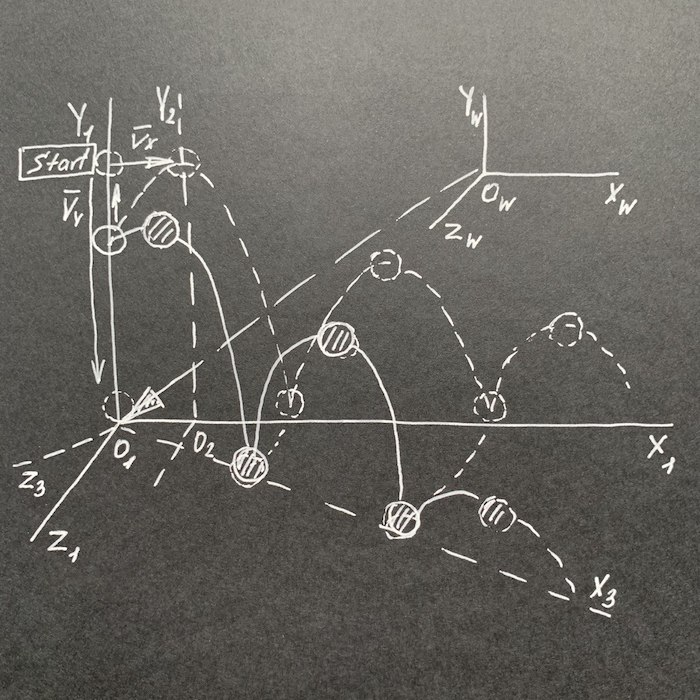 Y₁
Y₂
V̅x
Start
V̅y
Yw
Ow
Xw
Zw
O₁
O₂
X₁
Z₃
Z₁
X₃